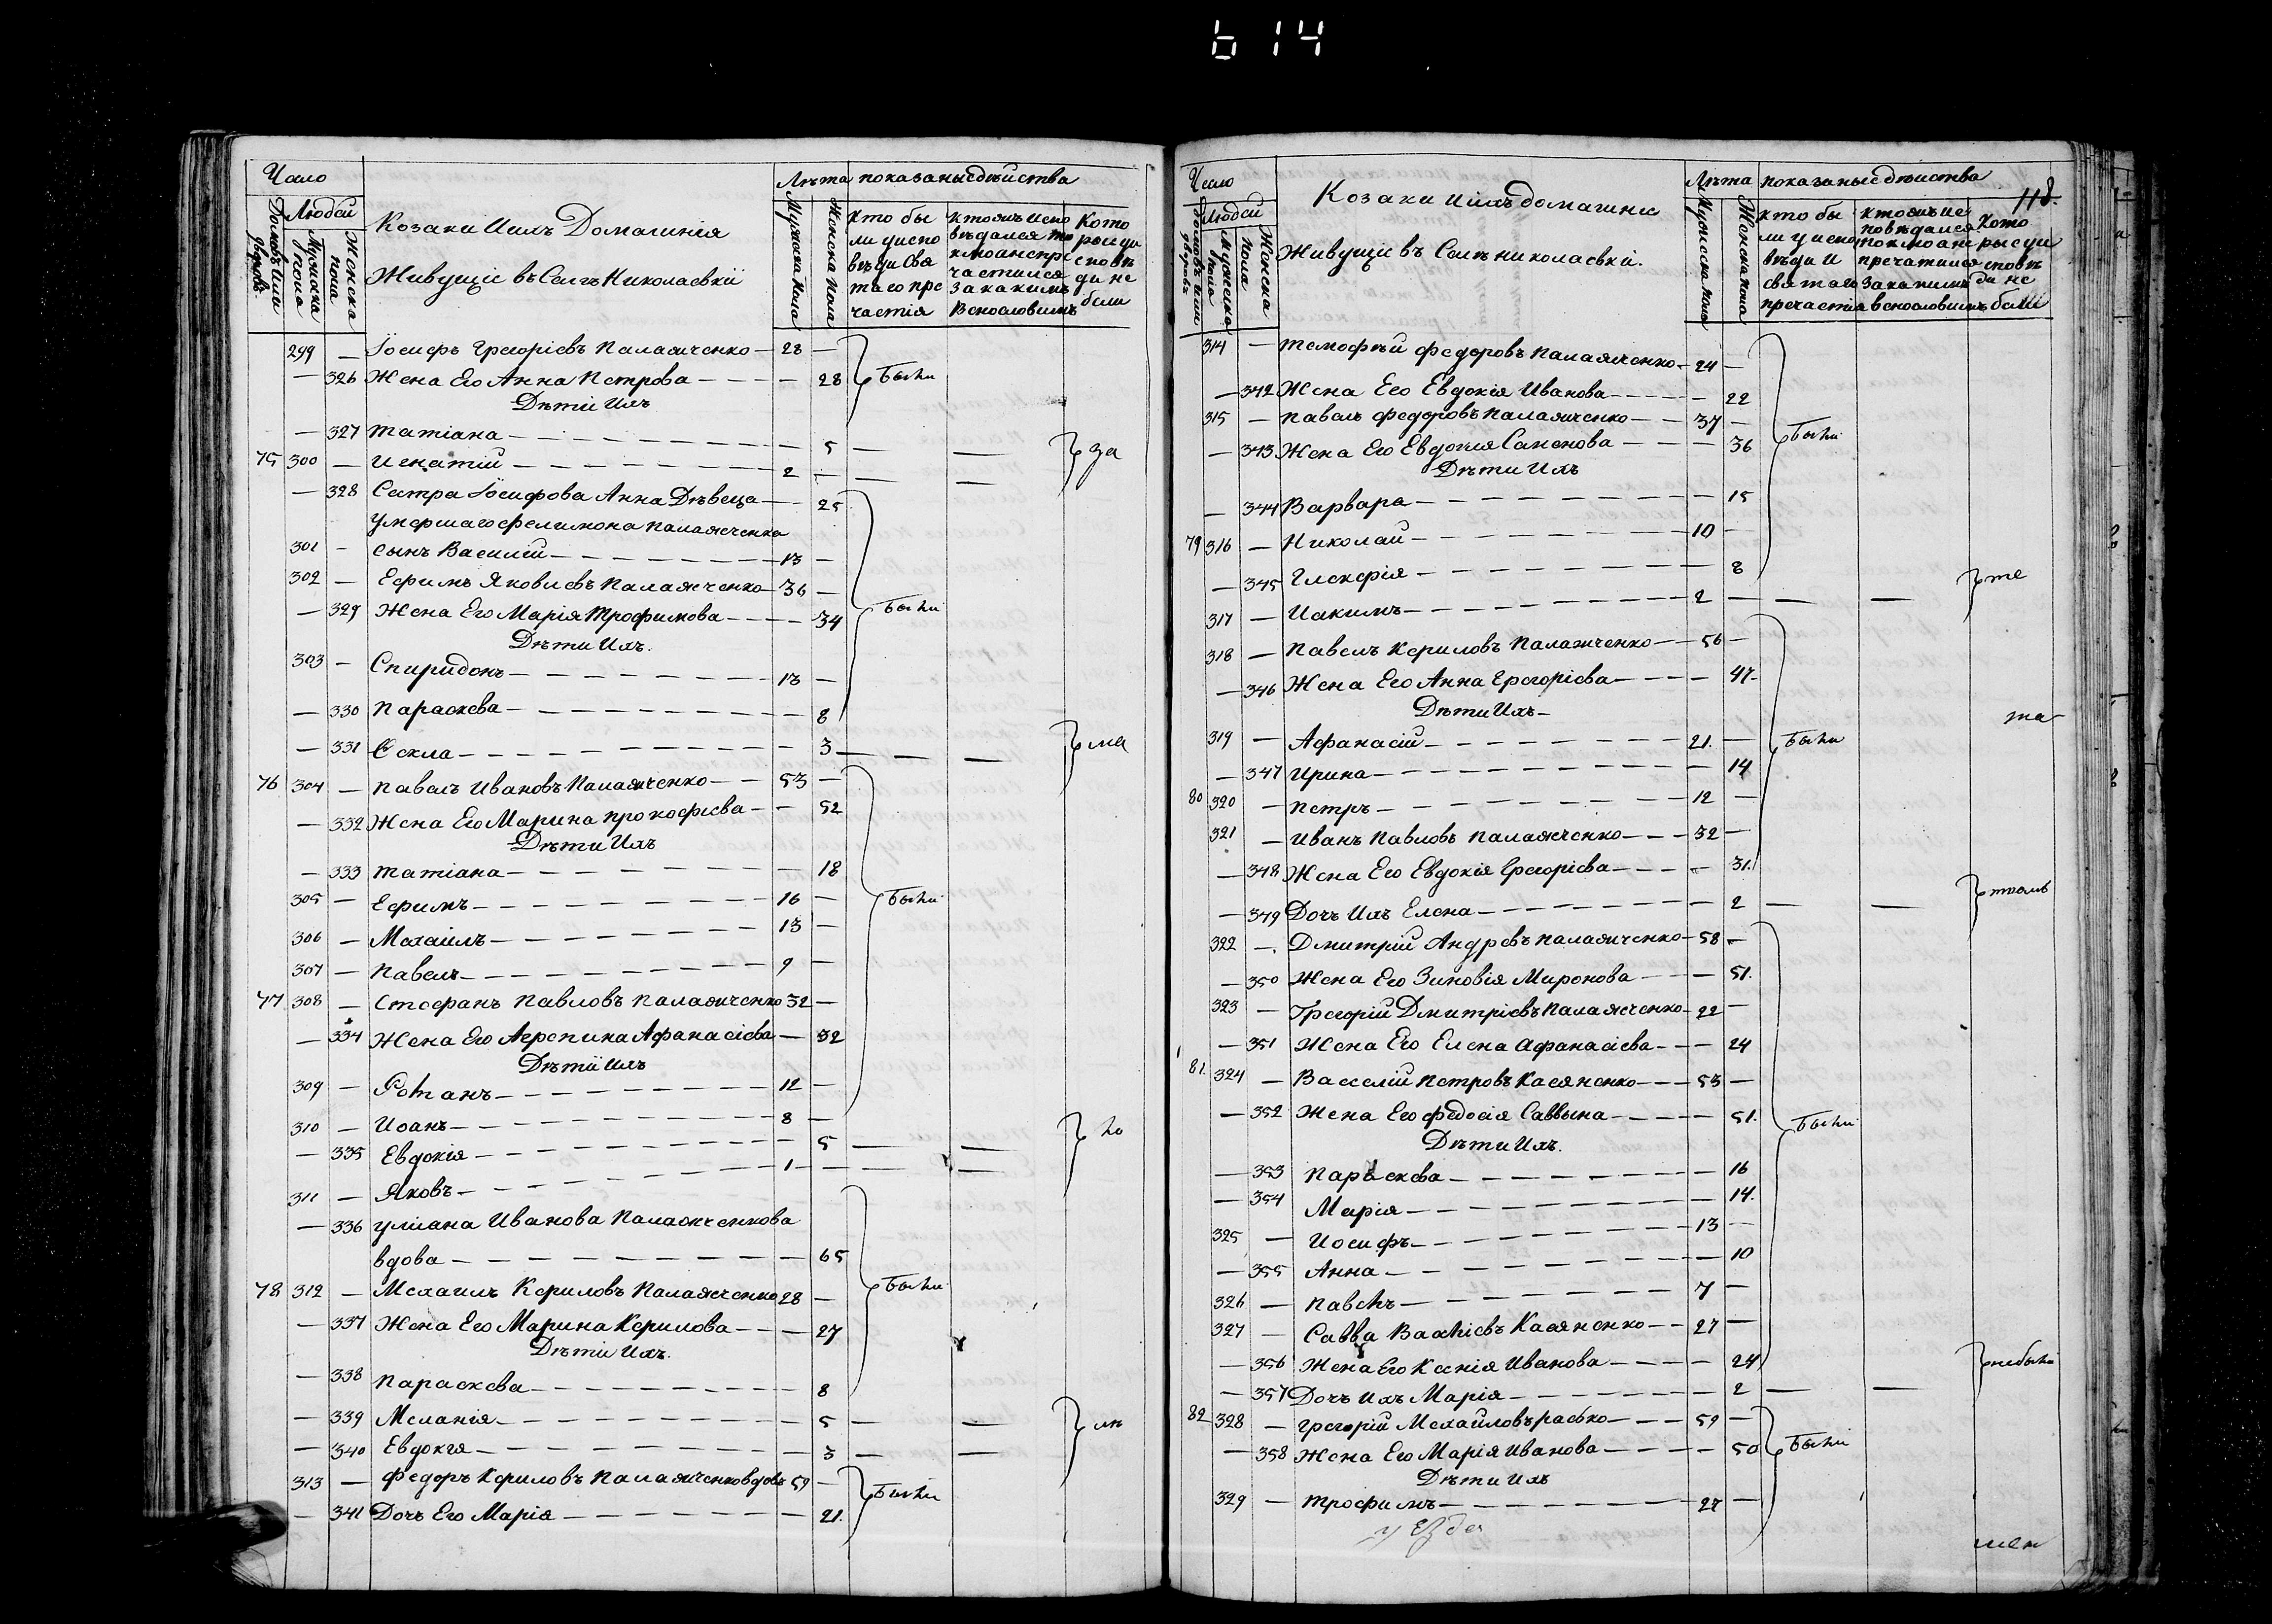 614
Число
Лѣта показаныѣ дѣиства
Людей
Домовъ Или дворовъ
Мужска пола
Женска пола
Козаки Иихъ Домашнія
Живущіе въ Селѣ Николаевкѣ
Мужска пола
Женска пола
кто бы ли уиспо вѣди Свя таго при частія
ктожъ испо вѣдался то кмо а не при частился за какимъ
Кото рые уи сповѣ ди не были
299 — Іосифъ Григоріевъ Палажченко — 28 —
— 326 Жена Его Анна Петрова — — 28 Были
Дѣти Ихъ
— 327 Татіана — — 5 — —
75 300 — Игнатій — 2 — — — за
— 328 Сестра Іосифова Анна Дѣвица — — 25
Умершаго Филимона Палажченка
301 — сынъ Василій — 13 —
302 — Ефимъ Яковлевъ Палажченко — 36 —
— 329 Жена Его Марія Трофимова — — 34 Были
Дѣти Ихъ.
303 — Спиридонъ — 13 —
— 330 Параскева — — 8
— 331 Фекла — — 3 — — ма
76 304 — Павелъ Ивановъ Палажченко — 53 —
— 332 Жена Его Марина Прокофіева — — 52
Дѣти Ихъ
— 333 Татіана — — 18
305 — Ефимъ — 16 — Были
306 — Михаилъ — 13 —
307 — Павелъ — 9 —
77 308 — Стефанъ Павловъ Палажченко 32 —
— 334 Жена Его Агрепина Афанасіева — 32
Дѣти ихъ
309 — Романъ — 12 —
310 — Иоанъ — 8 —
— 335 Евдокія — — 5 — — ло
311 — Яковъ — 1 — — —
— 336 Уліана Иванова Палажченкова
вдова — — 65
78 312 — Михаилъ Кириловъ Палажченко 28 — Были
— 337 Жена Его Марина Кирилова — — 27
Дѣти Ихъ.
— 338 Параскева — — 8
— 339 Меланія — — 5 — —
— 340 Евдокія — — 3 — —
313 — Федоръ Кириловъ Палажченко вдовъ 59 —
— 341 Дочь Его Марія — — 21. Были
Число
Козаки Иихъ домашни
Лѣта показаныѣ дѣиства
118.
Людей
Домовъ или дворовъ
Мужска пола
Женска пола
Живущіе въ Селѣ николаевки.
Мужска пола
Женска пола
кто бы ли у испо вѣди И святаго причастія
314 — Тимофѣй Федоровъ Палажченко — 24 —
— 342 Жена Его Евдокія Иванова — — 22
315 — Павелъ Федоровъ Палажченко — 37 —
— 343 Жена Его Евдокія Семенова — — 36 Были
Дѣти Ихъ
— 344 Варвара — — 15
79 316 — Николай — 10 —
— 345 Гликерія — — 8
317 — Иакимъ — 2 — — — те
318 — Павелъ Кириловъ Палажченко — 56 —
— 346 Жена Его Анна Григоріева — — 47.
Дѣти Ихъ —
319 — Афанасій — 21. — Были
— 347 Ирина — — 14
80 320 — Петръ — 12 —
321 — Иванъ Павловъ Палажченко — 32 —
— 348 Жена Его Евдокія Григоріева — — 31.
— 349 Дочь Ихъ Елена — — 2 — —
322 — Дмитрій Андреевъ Палажченко — 58 —
— 350 Жена Его Зиновія Миронова — — 51.
323 — Григорій Дмитріевъ Палажченко — 22 —
— 351 Жена Его Елена Афанасіева — — 24
81. 324 — Василій Петровъ Касяненко — 53 —
— 352 Жена Его Федосія Саввына — — 51. Были
Дѣти Ихъ.
— 353 Параскева — — 16
— 354 Марія — — 14.
325 — Иосифъ — 13 —
— 355 Анна — — 10
326 — Павелъ — 7 —
327 — Савва Васильевъ Касяненко — 27 —
— 356 Жена Его Ксенія Иванова — — 24
— 357 Дочь ихъ Марія — — 2 — — небыли
82 328 — Григорій Михаиловъ — 59 —
— 358 Жена Его Марія Иванова — — 50 Были
Дѣти Ихъ
329 — Трофимъ — 27 —